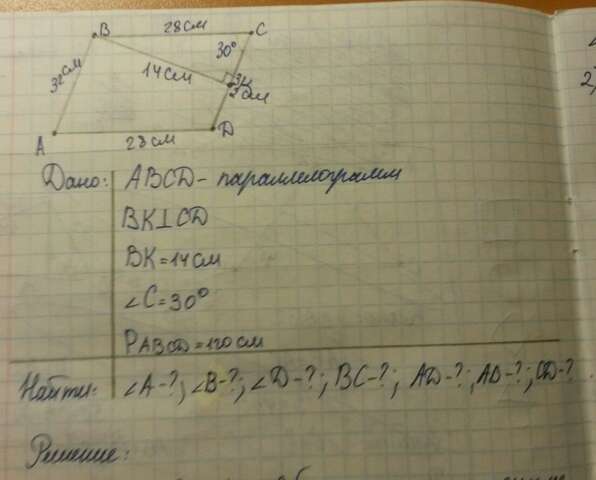 B 28см C
30°
32см 14см K
32см
A 28см D
Дано: ABCD - параллелограмм
BK⊥CD
BK=14см
∠C=30°
PABCD=120см
Найти: ∠A-?; ∠B-?; ∠D-?; BC-?; AD-?; AB-?; CD-?
Решение:
2)